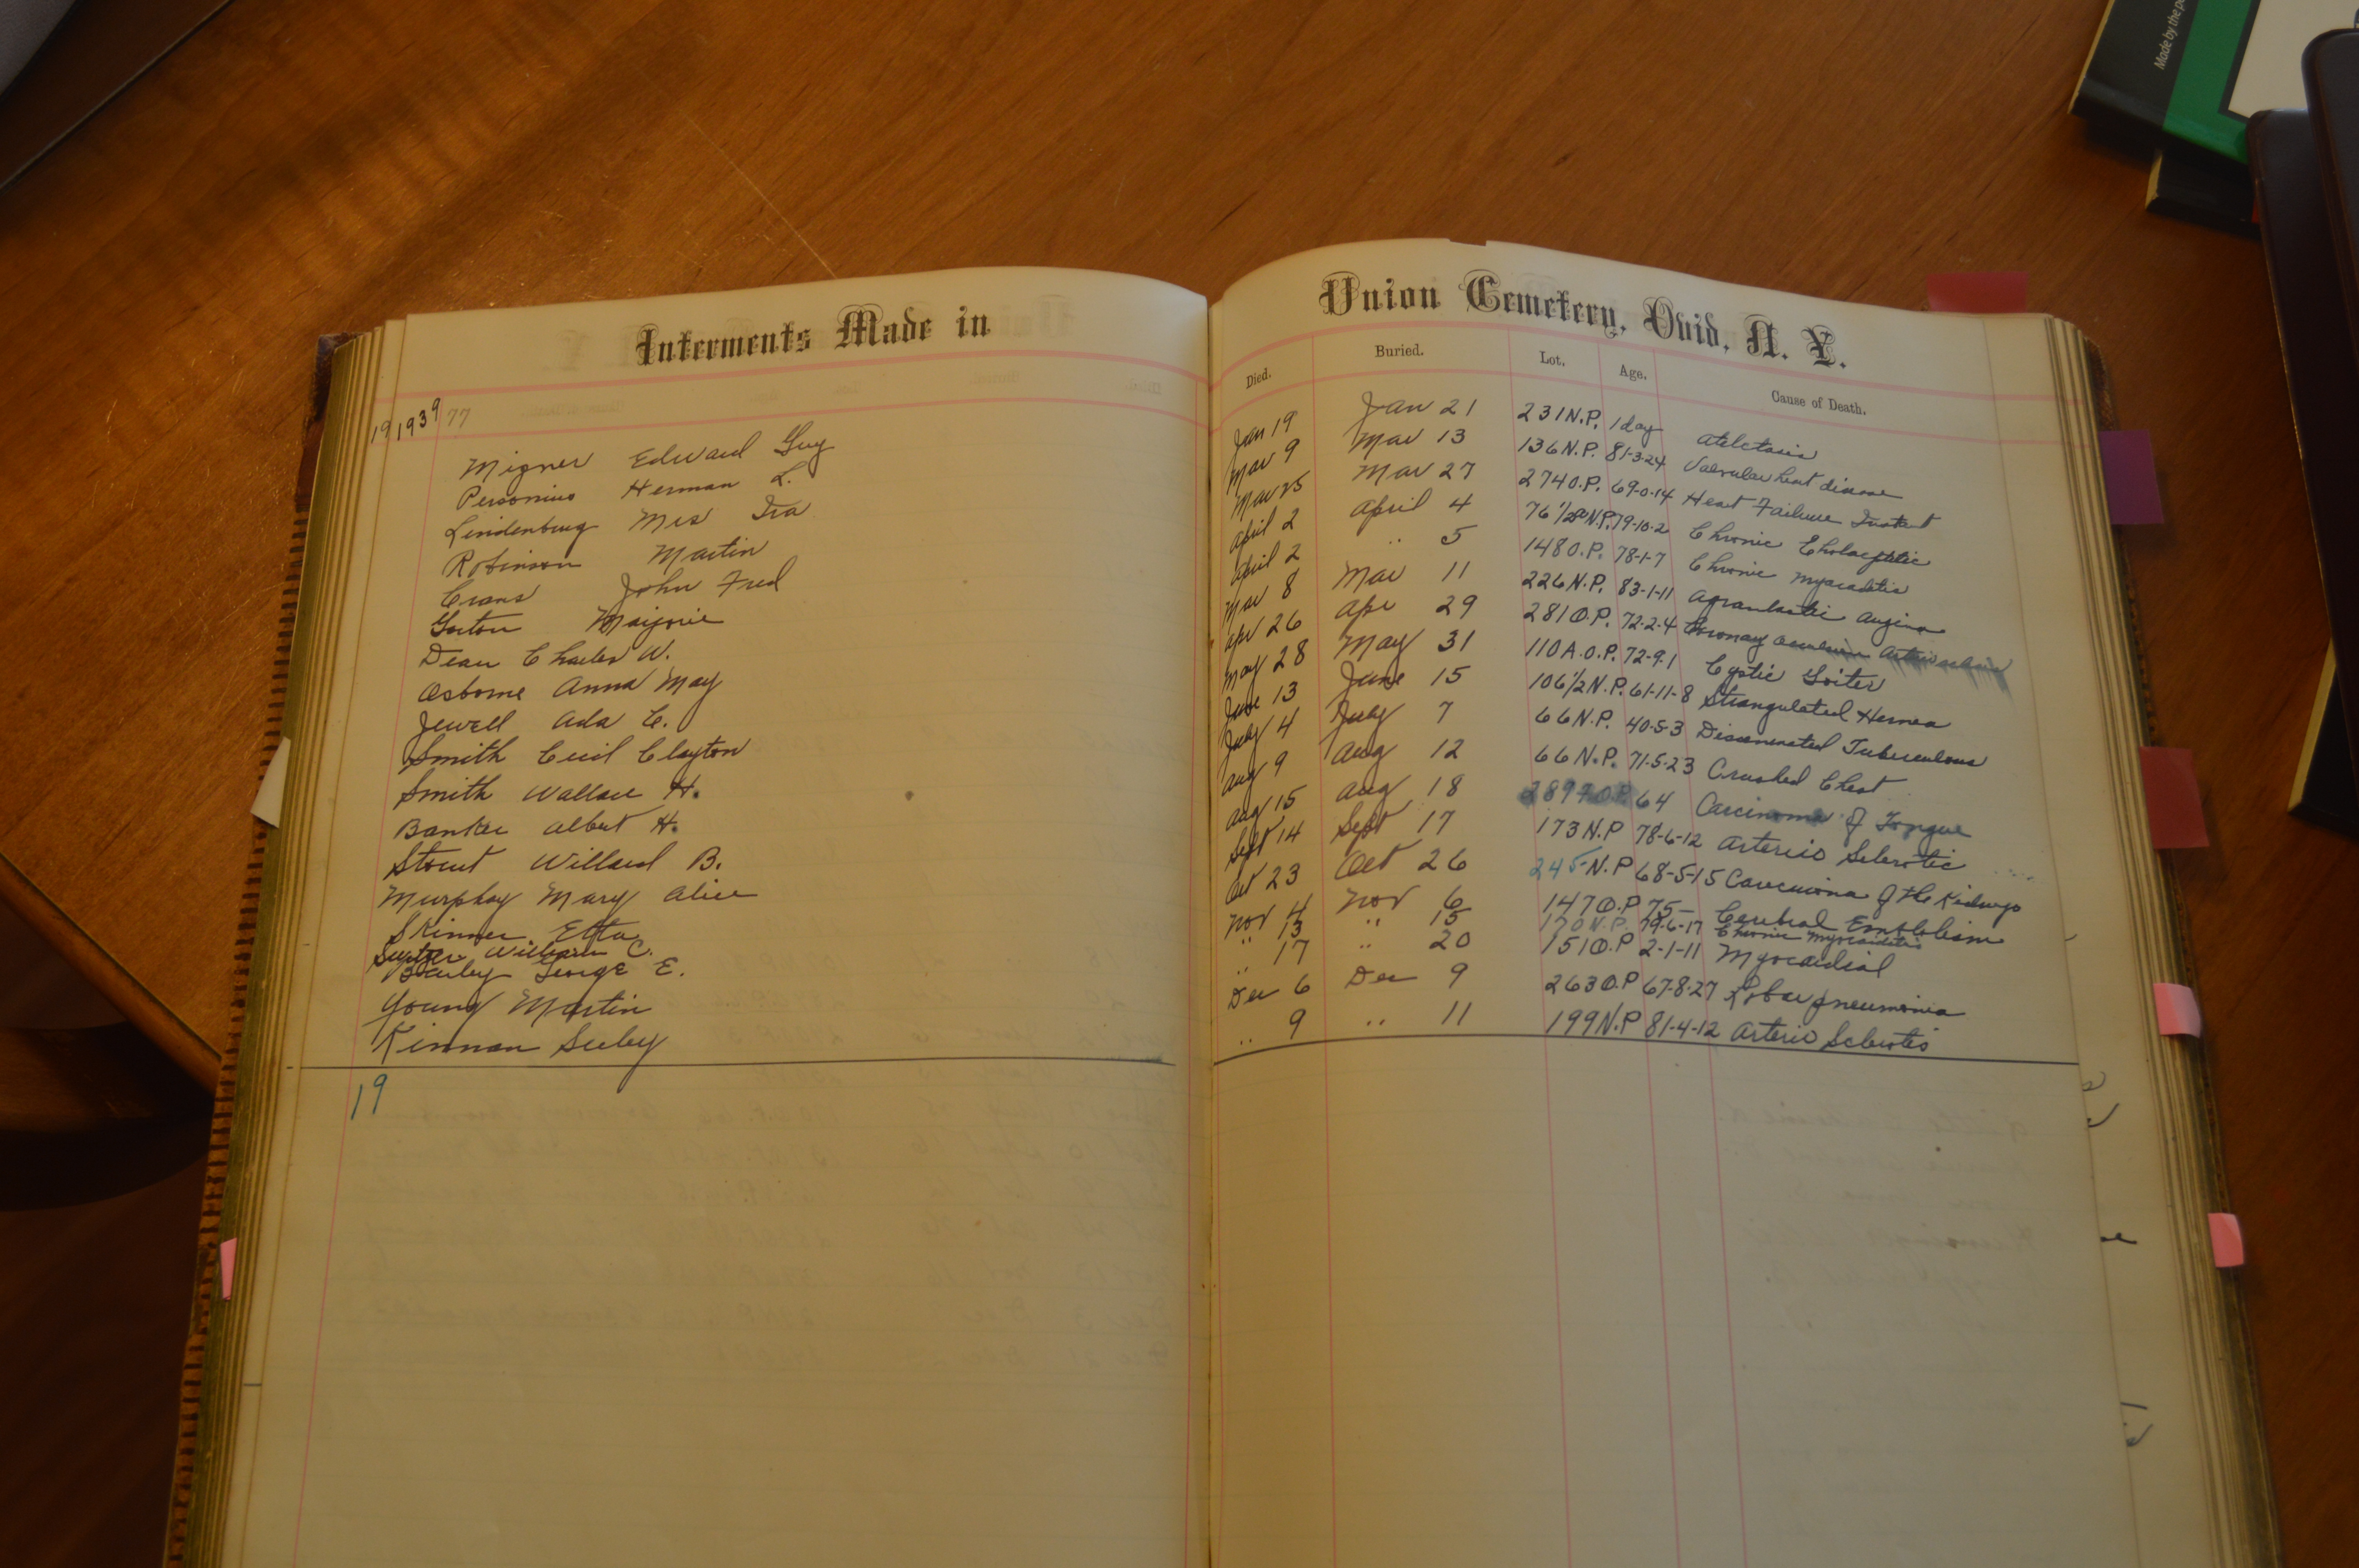 Made by the p
Interments Made in Union Cemetery, Ovid, N. Y.
Died. Buried. Lot. Age. Cause of Death.
19 1939 77
Migner Edward Guy Jan 19 Jan 21 231 N.P. 1 day Atelctasis
Personius Herman L. Mar 9 Mar 13 136 N.P. 81-3-24 Valvular heart disease
Lindenburg Mrs Ira Mar 25 Mar 27 274 O.P. 69-0-14 Heart Failure
Robinson Martin April 2 April 4 76 1/2 N.P. 79-10-2 Chronic
Crans John Fred April 2 .. 5 148 O.P. 78-1-7 Chronic Myocarditis
Marjorie Mar 8 Mar 11 226 N.P. 83-1-11 Angina
Dean Charles W. Apr 26 Apr 29 281 O.P. 72-2-4 Coronary
Osborne Anna May May 28 May 31 110 A.O.P. 72-9-1 Cystic Goiter
Jewell Ada C. June 13 June 15 106 1/2 N.P. 61-11-8 Strangulated Hernea
Smith Cecil Clayton July 4 July 7 66 N.P. 40-5-3 Tuberculous
Smith Wallace H. Aug 9 Aug 12 66 N.P. 71-5-23 Crushed Chest
Banker Albert H. Aug 15 Aug 18 64 Carcinoma of Tongue
Stout Willard B. Sept 14 Sept 17 173 N.P 78-6-12 Arterio Sclerotic
Murphy Mary Alice Oct 23 Oct 26 245 N.P 68-5-15 of the Kidneys
Skinner Etta Nov 4 Nov 6 147 O.P 75 Cerebral
William C. .. 13 .. 15 170 N.P. 79-6-17 Chronic Myocarditis
George E. .. 17 .. 20 151 O.P 2-1-11 Myocardial
Young Martin Dec 6 Dec 9 263 O.P 67-8-27 Lobar pneumonia
Kinnan Seeley .. 9 .. 11 199 N.P 81-4-12 Arterio
19